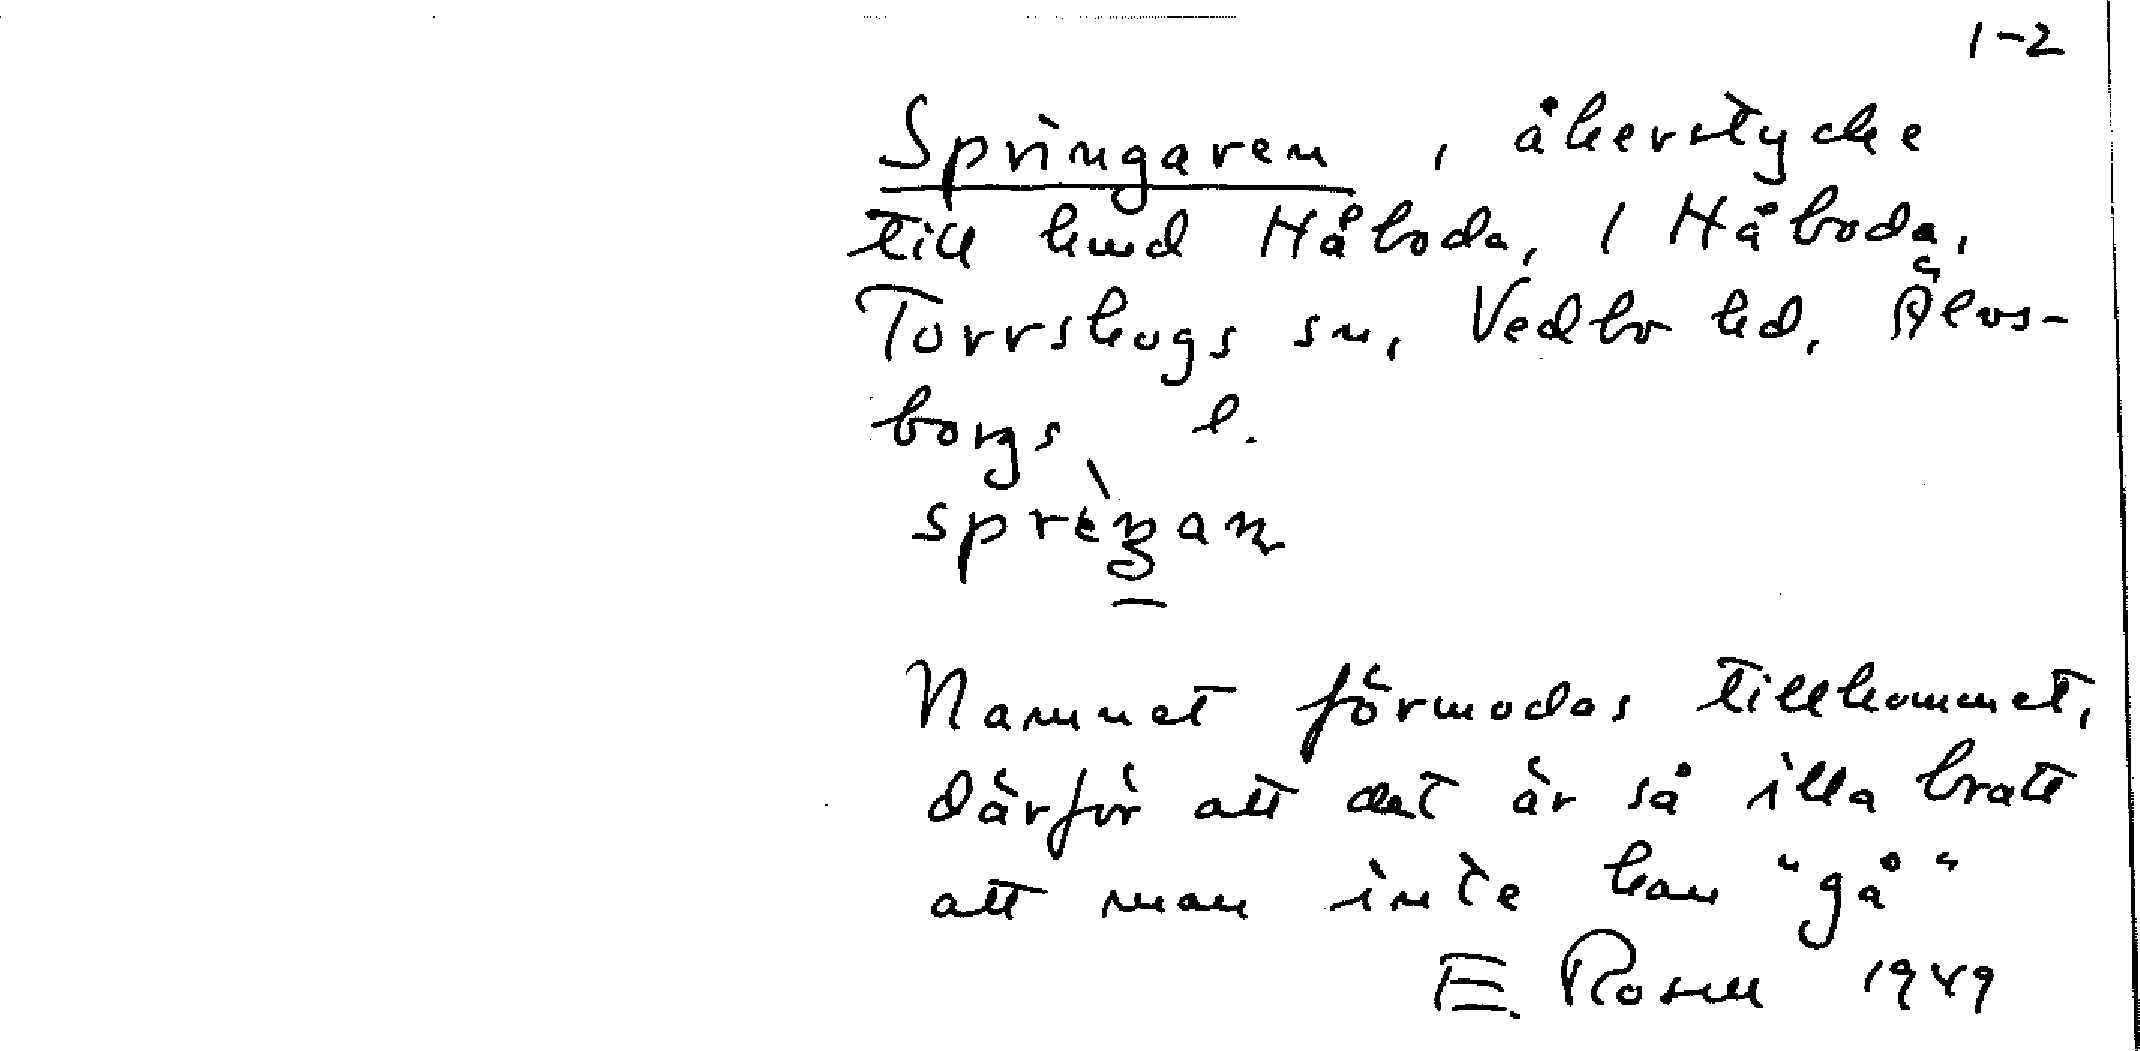 1-2
Springaren, åkerstycke
till hmd Håboda, 1 Håboda,
Torrskogs sn, Vedbo hd, Älvs-
borgs l.
Namnet förmodas tillkommet,
därför att det är så illa bratt
att man inte kan "gå"
E. Rosell 1949